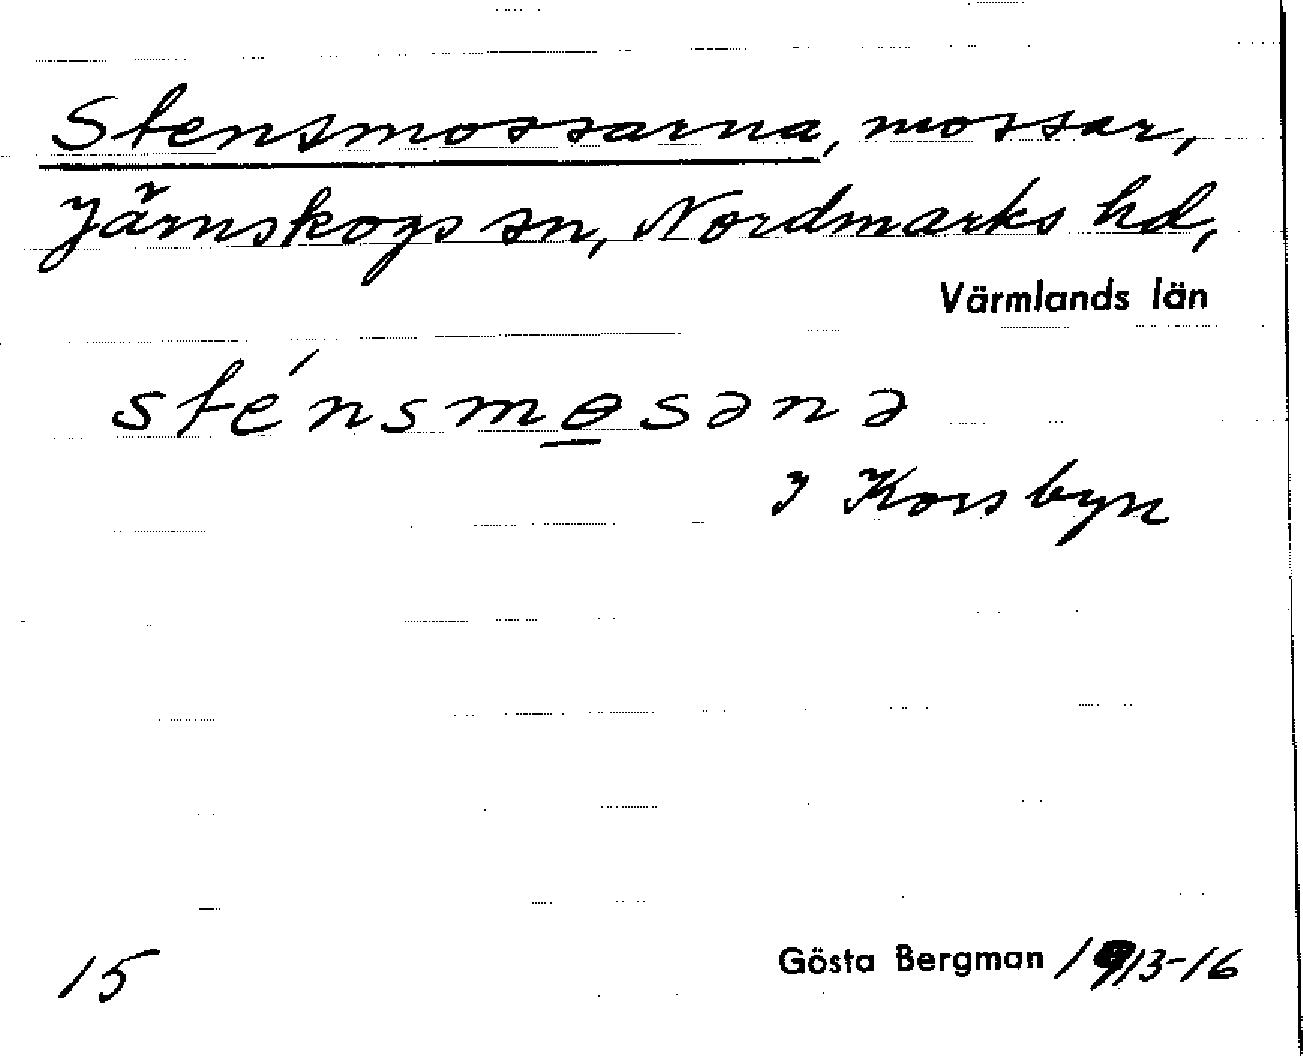 Stensmossarna, mossar,
Järnskogs sn, Nordmarks hd,
Värmlands län
sténsmɵsənə
I Korsbyn
15 Gösta Bergman 1913-16